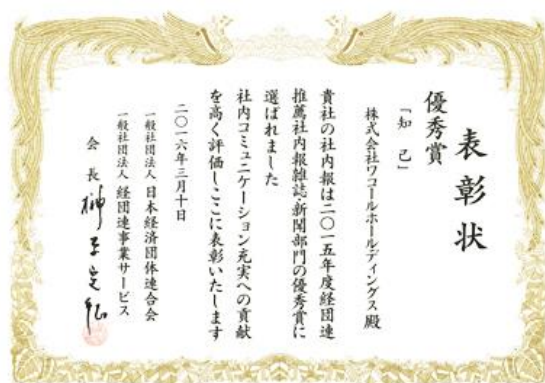 表彰状
優秀賞
「知己」
株式会社ワコールホールディングス 殿
貴社の社内報は二〇一五年度経団連
推薦社内報雑誌・新聞部門の優秀賞に
選ばれました
社内コミュニケーション充実への貢献
を高く評価しここに表彰いたします
二〇一六年三月十日
一般社団法人 日本経済団体連合会
一般社団法人 経団連事業サービス
会長 榊原定征